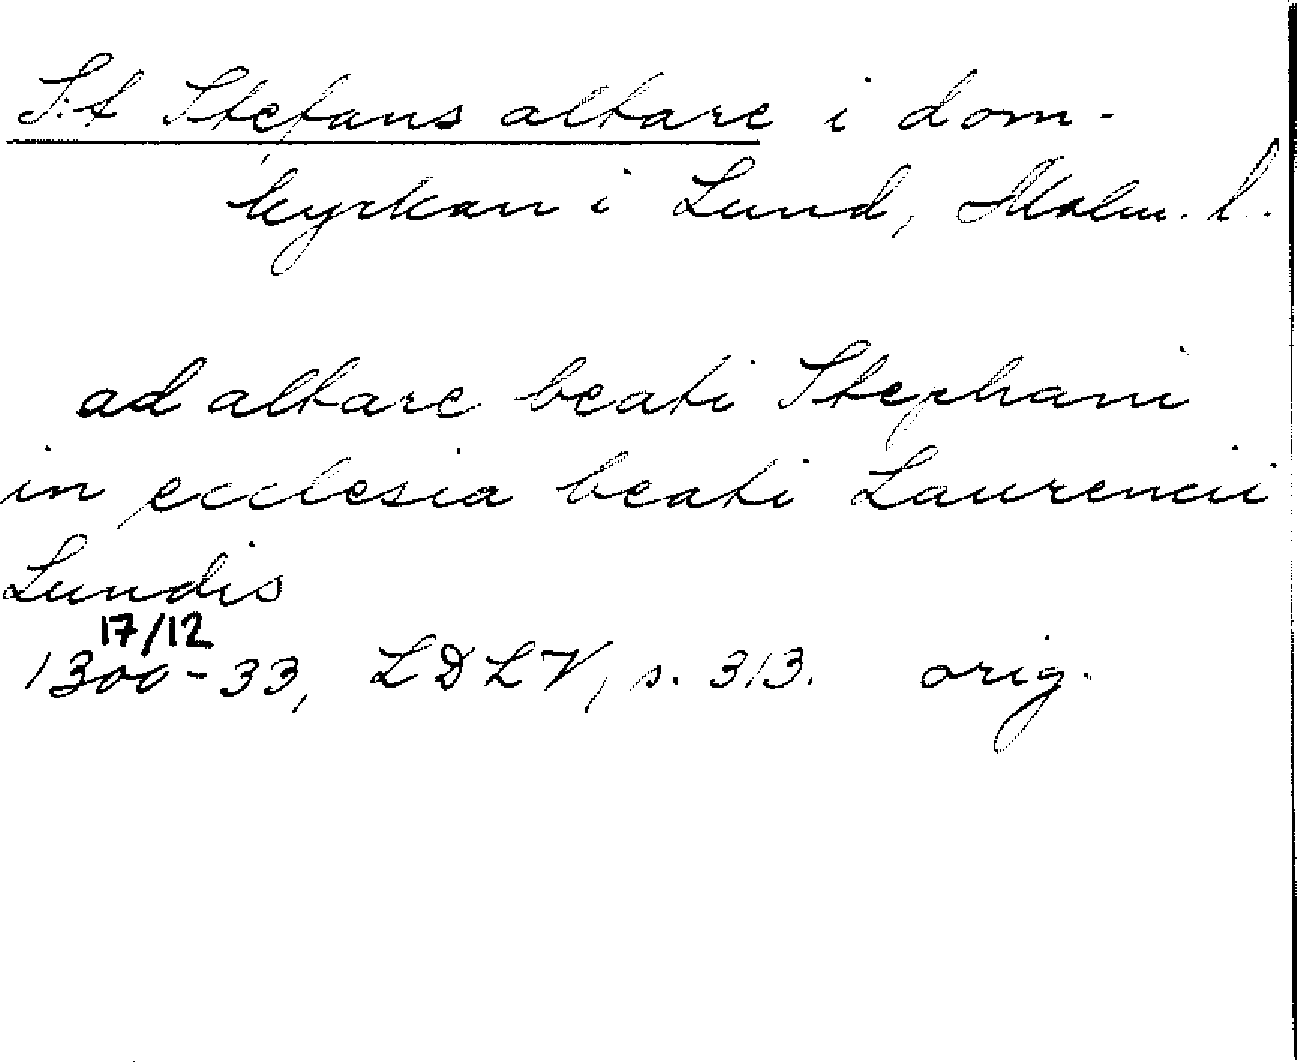 S:t Stefans altare i dom-
kyrkan i Lund, Malm. l.
ad altare beati Stephani
in ecclesia beati Laurencii
Lundis
17/12
1300-33, LDLV, s. 313. orig.